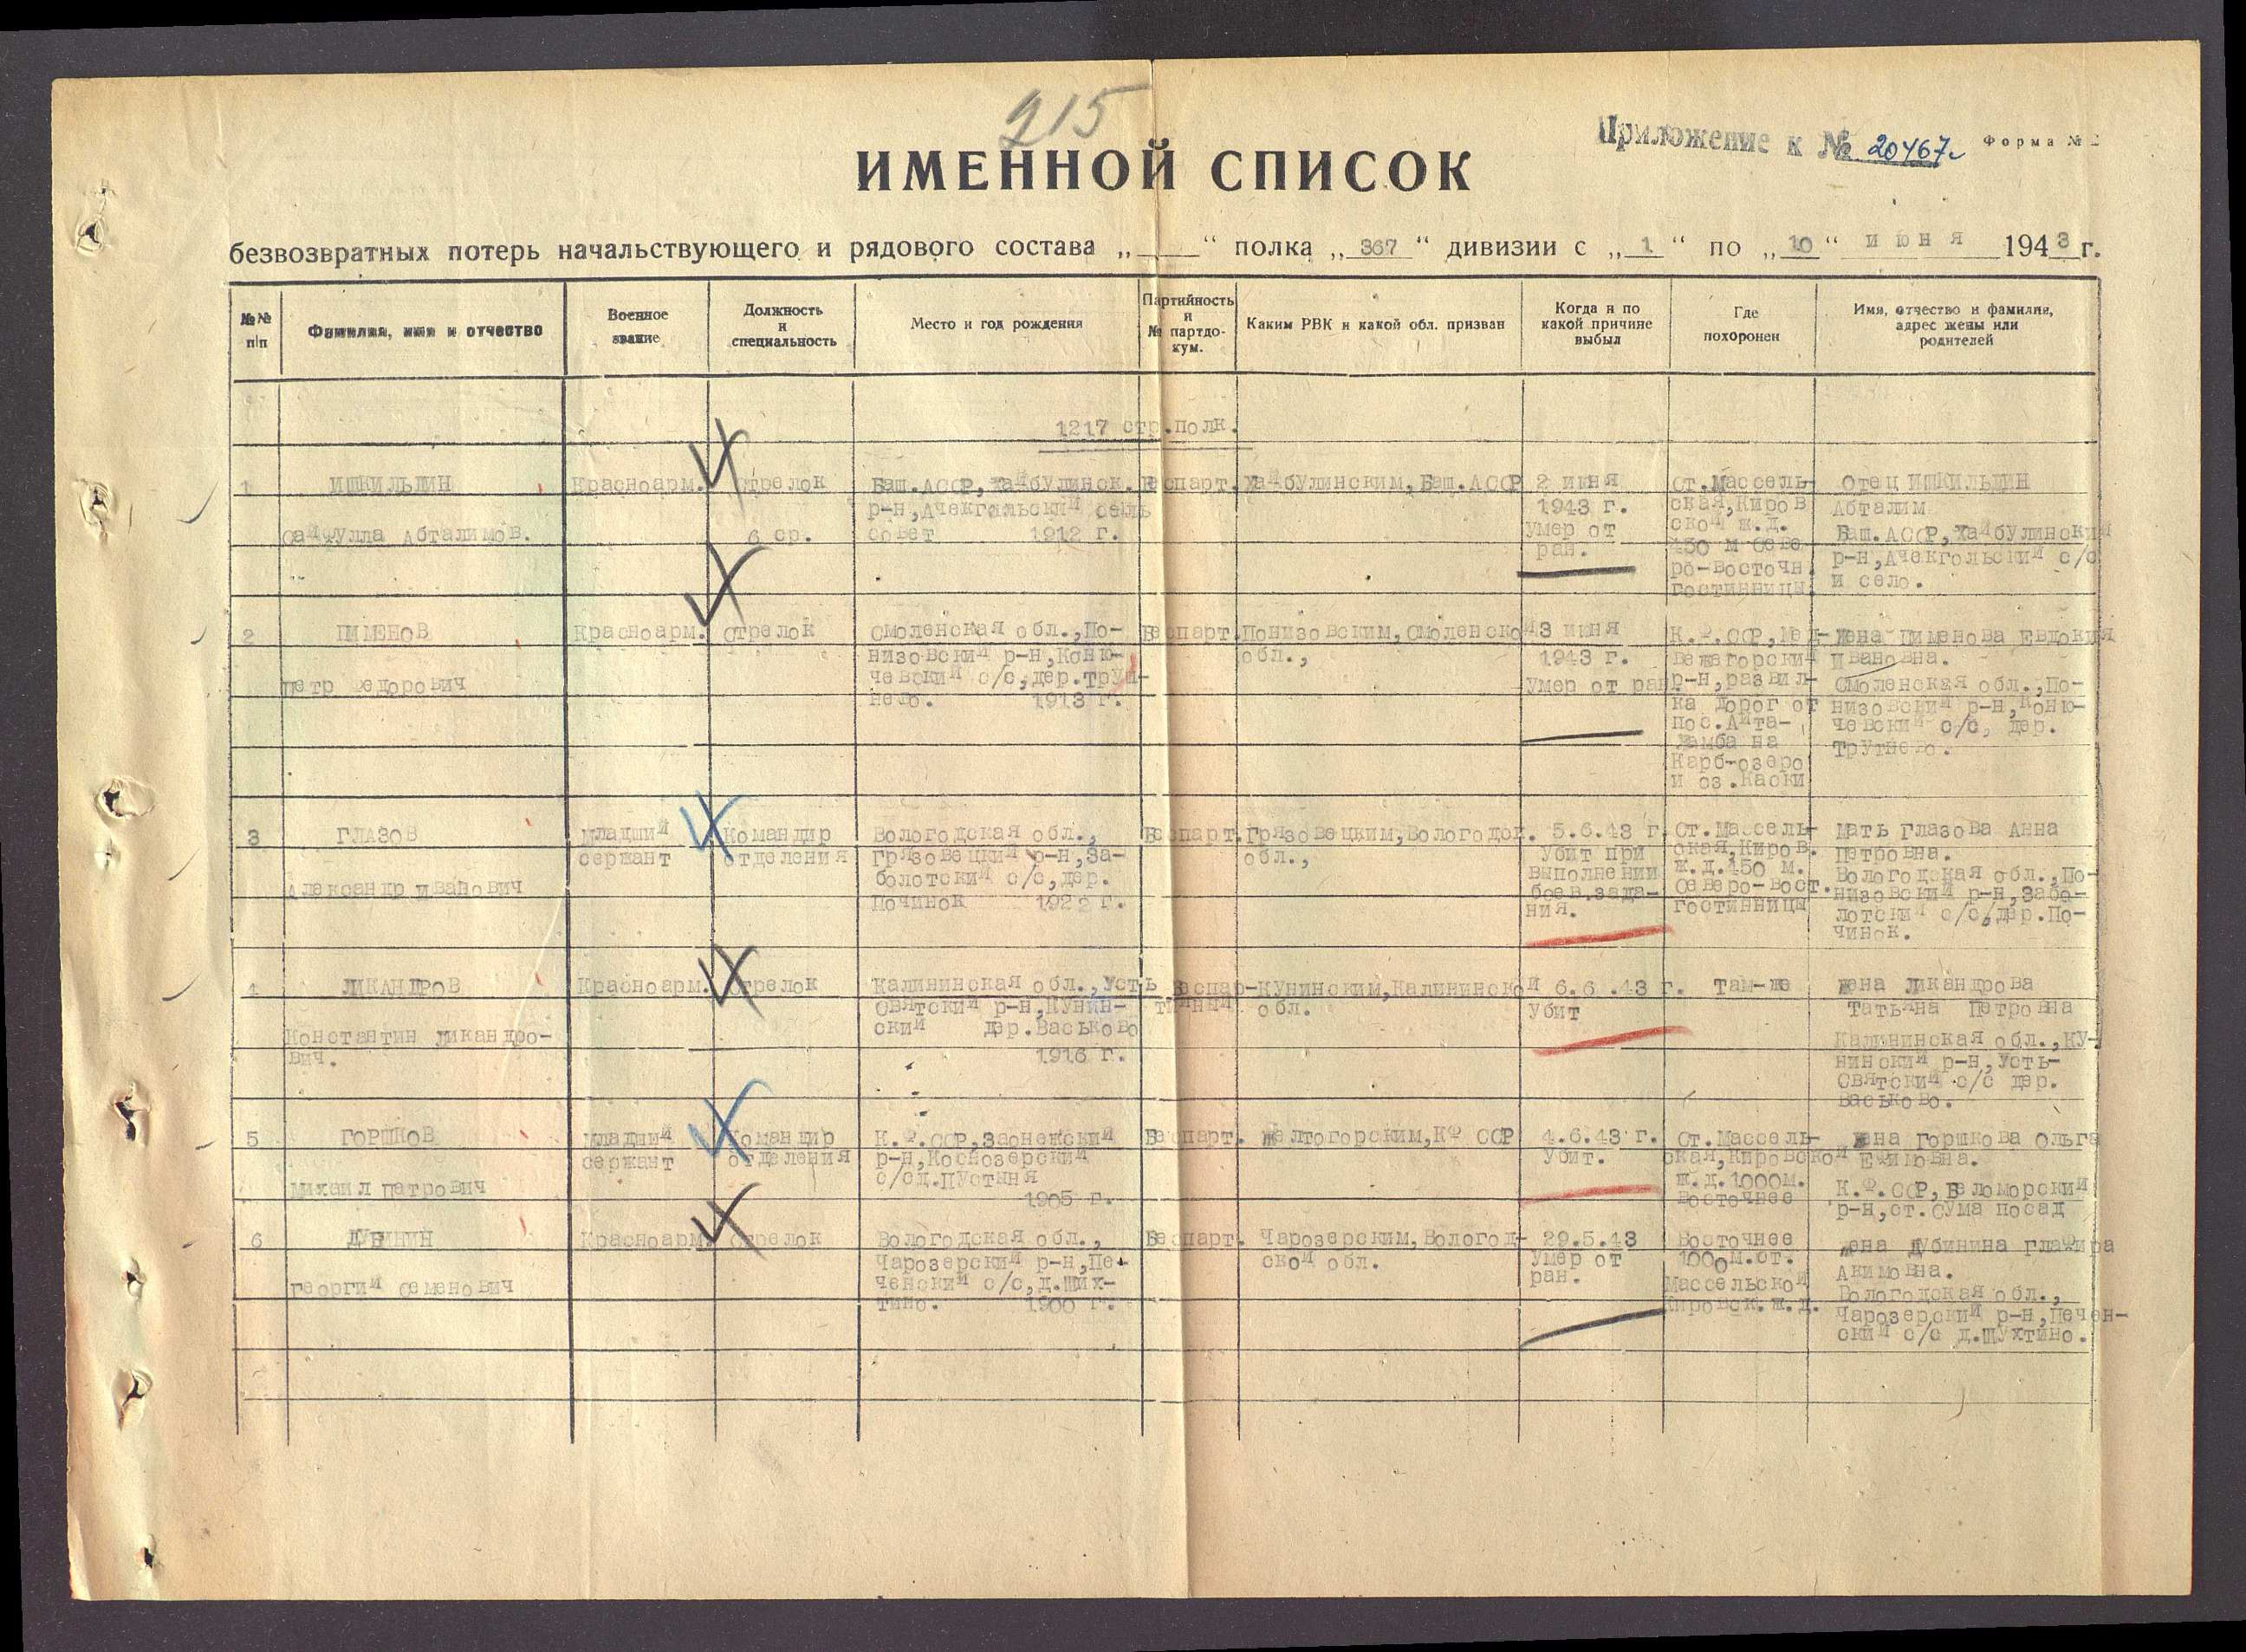 215
Приложение к № 20467с Форма № 2
ИМЕННОЙ СПИСОК
безвозвратных потерь начальствующего и рядового состава „ “ полка „ 367 “ дивизии с „ 1 “ по „ 10 “ июня 1943 г.
№№ п|п
Фамилия, имя и отчество
Военное звание
Должность и специальность
Место и год рождения
Партийность и № партдокум.
Каким РВК и какой обл. призван
Когда и по какой причине выбыл
Где похоронен
Имя, отчество и фамилия, адрес жены или родителей
1217 стр.полк.
1
ИШКИЛЬДИН
Сайфулла Абталимов.
Красноарм.
Стрелок
6 ср.
Баш.АССР, Хайбулинск.
р-н, Ачекгольский сель
совет 1912 г.
Беспарт.
Хайбулинским, Баш.АССР
2 июня
1943 г.
Умер от
ран.
Ст.Массель-
ская, Киров
ской ж.д.
450 м севе
ро-восточн.
гостинницы.
Отец ИШКИЛЬДИН
Абталим
Баш.АССР, Хайбулинский
р-н, Ачекгольский с/с
и село.
2
ПИМЕНОВ
Петр Федорович
Красноарм.
Стрелок
Смоленская обл., По-
низовский р-н, Коню-
чевский с/с, дер.Трут-
нево. 1913 г.
Беспарт.
Понизовским, Смоленской
обл.,
3 июня
1943 г.
Умер от ран.
К.Ф.ССР, Мед-
вежегорский
р-н, развил-
ка дорог от
пос.Айта-
Ламба на
Карб-озеро
и оз.Каски
Жена Пименова Евдокия
Ивановна.
Смоленская обл., По-
низовский р-н, Коню-
чевский с/с, дер.
Трутнево.
3
ГЛАЗОВ
Александр Иванович
Младший
сержант
Командир
отделения
Вологодская обл.,
Грязовецкий р-н, За-
болотский с/с, дер.
Починок 1922 г.
Беспарт.
Грязовецким, Вологодск.
обл.,
5.6.43 г.
Убит при
выполнении
боев.зада-
ния.
Ст.Массель-
ская, Киров.
ж.д. 450 м.
Северо-вост.
гостинницы
Мать Глазова Анна
Петровна.
Вологодская обл., По-
низовский р-н, Забо-
лотский с/с, дер.По-
чинок.
4
ЛИКАНДРОВ
Константин Ликандро-
вич.
Красноарм.
Стрелок
Калининская обл., Усть
Святский р-н, Кунин-
ский дер.Васьково
1916 г.
Беспар-
тийный
Кунинским, Калининской
обл.
6.6.43 г.
Убит
Там-же
Жена Ликандрова
Татьяна Петровна
Калининская обл., Ку-
нинский р-н, Усть-
Святский с/с дер.
Васьково.
5
ГОРШКОВ
Михаил Петрович
Младший
сержант
Командир
отделения
К.Ф.ССР, Заонежский
р-н, Космозерский
с/с д.Пустыня
1905 г.
Беспарт.
Желтогорским, КФ ССР
4.6.43 г.
Убит.
Ст.Массель-
ская, Кировской
ж.д. 1000м.
восточнее
Жена Горшкова Ольга
Ефимовна.
К.Ф.ССР, Беломорский
р-н, ст.Сума посад
6
ДУБИНИН
Георгий Семенович
Красноарм.
Стрелок
Вологодская обл.,
Чарозерский р-н, Пе-
ченский с/с, д.Ших-
тино. 1900 г.
Беспарт.
Чарозерским, Вологод-
ской обл.
29.5.43
Умер от
ран.
Восточнее
1000м.ст.
Массельской
Кировск.ж.д.
Жена Дубинина Глафира
Акимовна.
Вологодская обл.,
Чарозерский р-н, Печен-
ский с/с д.Шухтино.